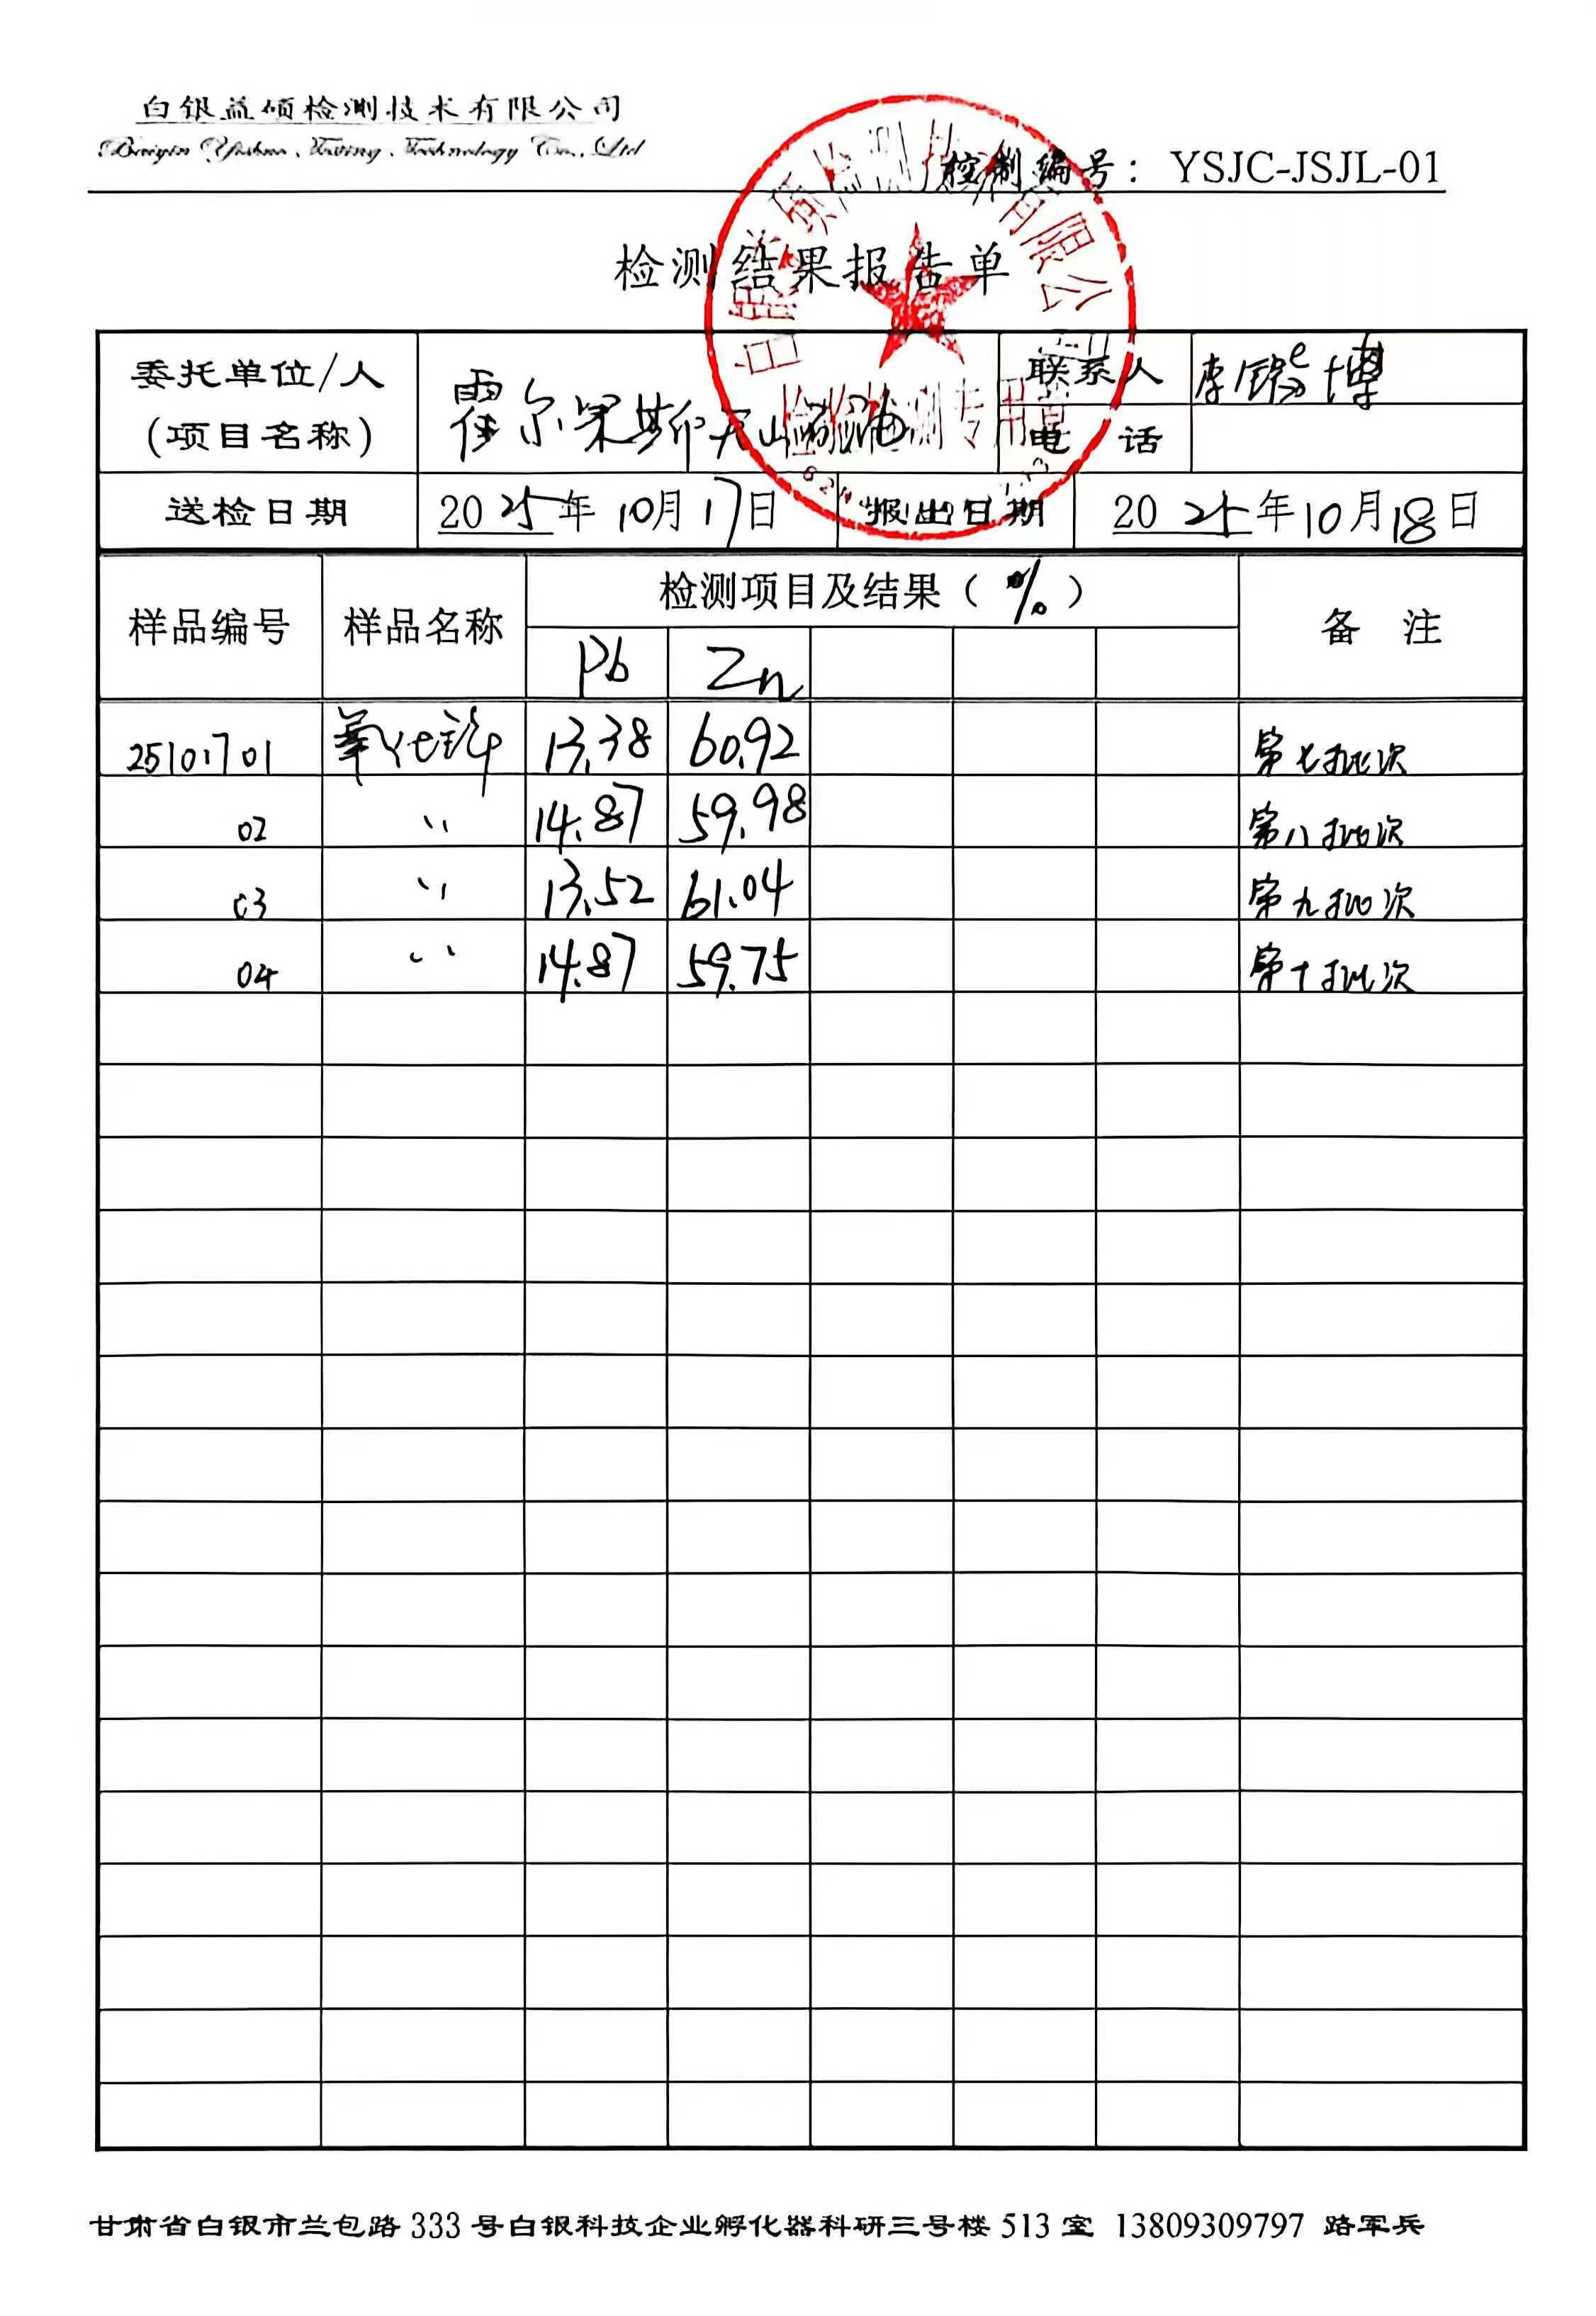 白银益硕检测技术有限公司
Baiyin Yishuo Testing Technology Co., Ltd
控制编号：YSJC-JSJL-01
检测结果报告单
委托单位/人
(项目名称)
霍尔果斯天山
联系人 李 博
电 话
送检日期 2025年10月17日 报出日期 2025年10月18日
样品编号 样品名称 检测项目及结果（%） 备 注
Pb Zn
25101701 氧化锌 13.38 60.92 第七批次
02 〃 14.87 59.98 第八批次
03 〃 13.52 61.04 第九批次
04 〃 14.87 59.75 第十批次
检验检测专用章
甘肃省白银市兰包路 333 号白银科技企业孵化器科研三号楼 513 室 13809309797 路军兵